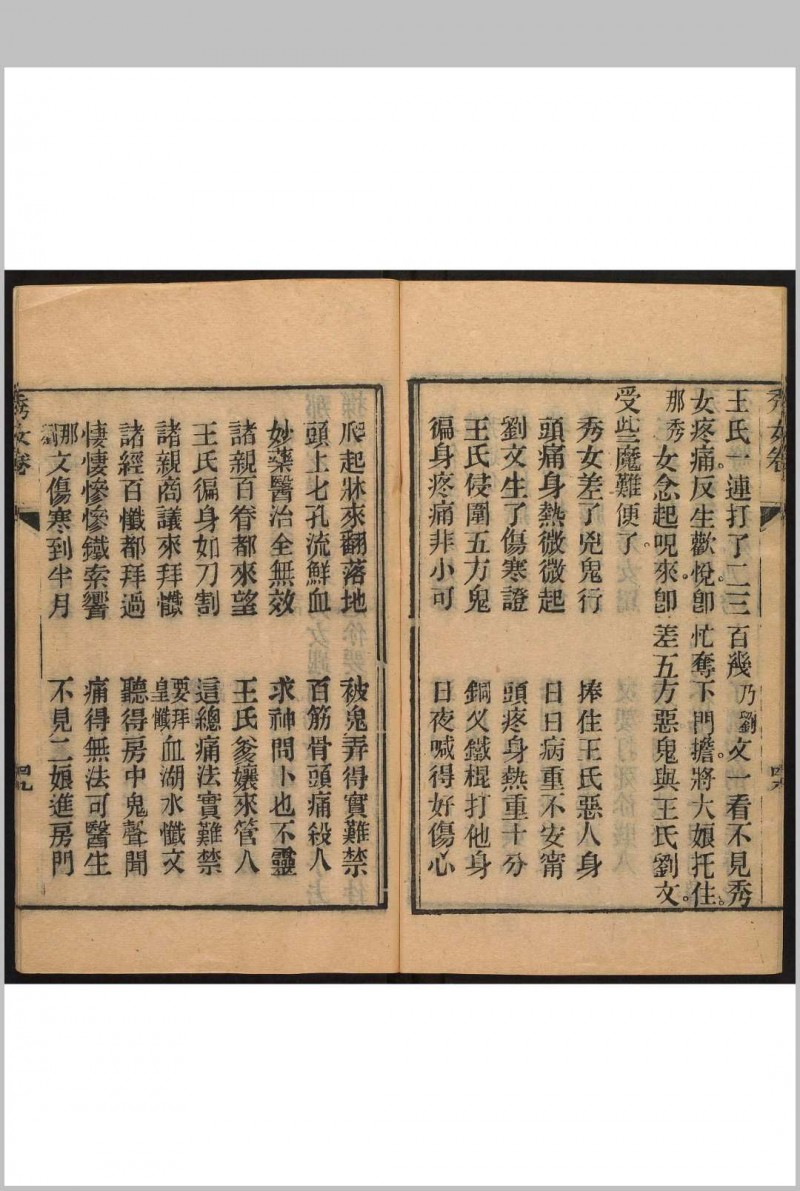 秀女卷
四八
王氏一連打了二三百幾乃劉文一看不見秀
女疼痛。反生歡悅。卽忙奪下門擔。將大娘托住。
那秀女念起呪來。卽差五方惡鬼與王氏劉文。
受些魔難便了。
秀女差了兇鬼行 捧住王氏惡人身
頭痛身熱微微起 日日病重不安甯
劉文生了傷寒證 頭疼身熱重十分
王氏侵圍五方鬼 鋼叉鐵棍打他身
徧身疼痛非小可 日夜喊得好傷心
爬起牀來翻落地 被鬼弄得實難禁
頭上七孔流鮮血 百筋骨頭痛殺人
妙藥醫治全無效 求神問卜也不靈
諸親百眷都來望 王氏爹孃來管人
王氏徧身如刀割 這總痛法實難禁
諸親商議來拜懺 要拜皇懺血湖水懺文
諸經百懺都拜過 聽得房中鬼聲聞
悽悽慘慘鐵索響 痛得無法可醫生
那劉文傷寒到半月 不見二娘進房門
秀女卷
四九